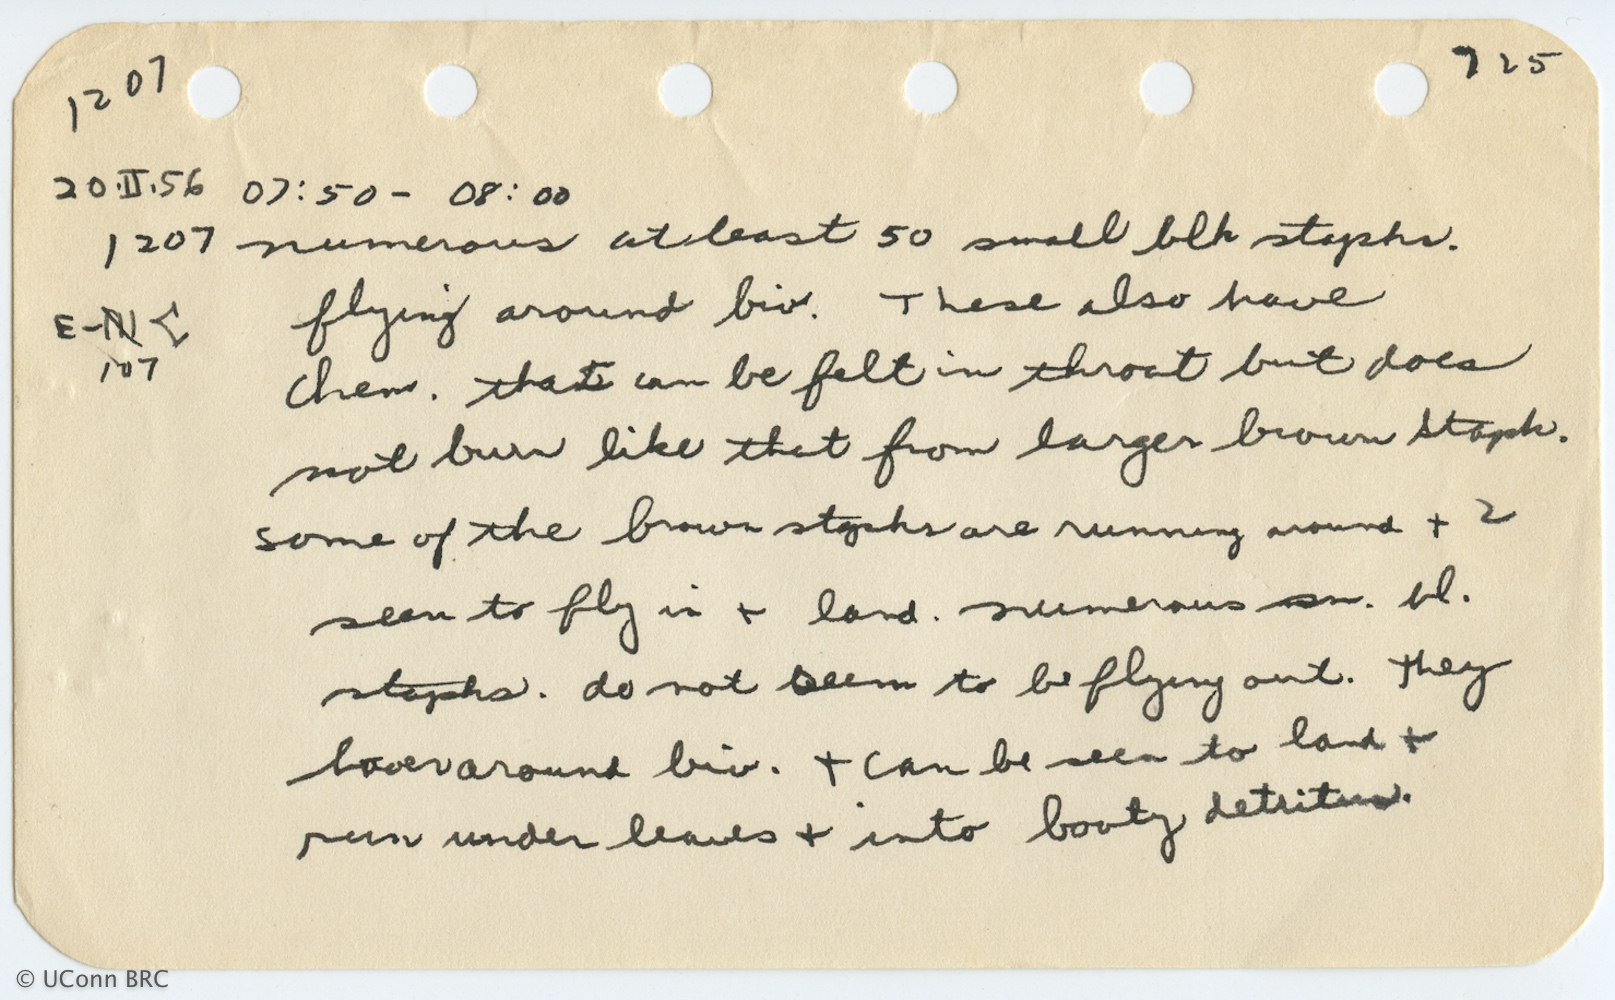 1207
725
20.II.56 07:50 - 08:00
1207 numerous at least 50 small blk staphs.
flying around biv. These also have
E-N
107
Chem. that can be felt in throat but does
not burn like that from larger brown staph.
some of the brown staphs are running around + 2
seen to fly in + land. numerous sm. bl.
staphs. do not seem to be flying out. They
hover around biv. + can be seen to land +
run under leaves + into booty detritus.
© UConn BRC